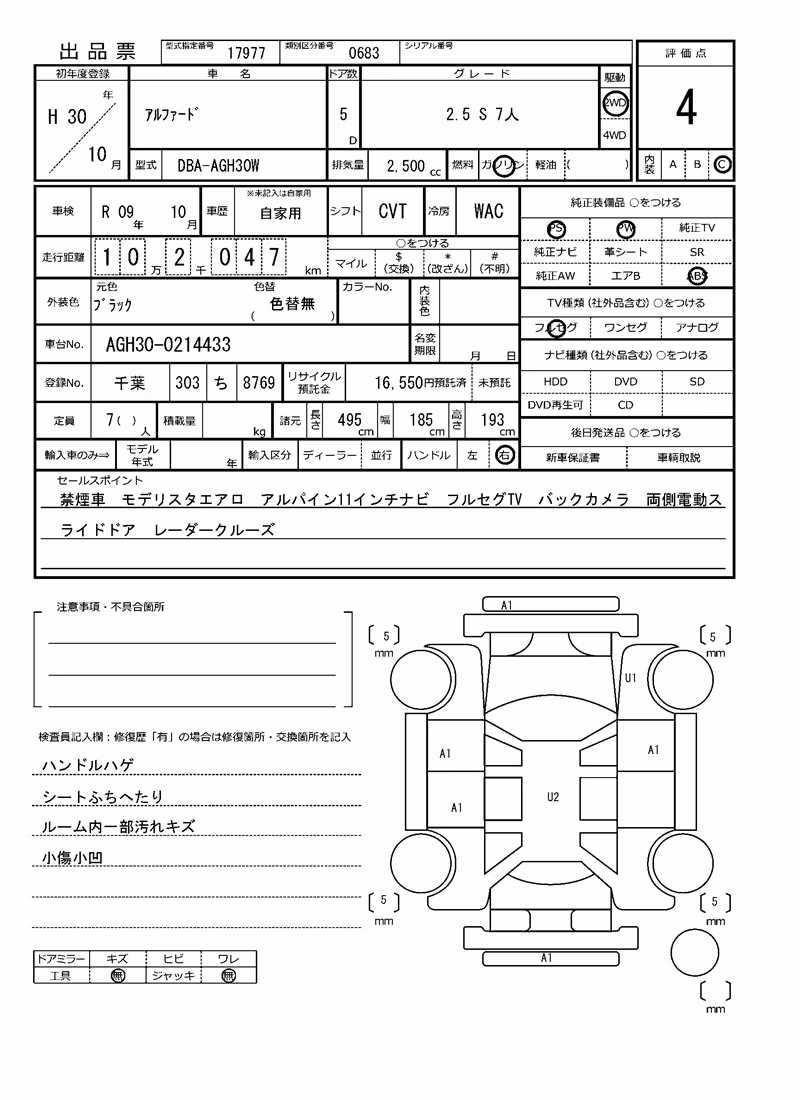 出品票
型式指定番号 17977 類別区分番号 0683 シリアル番号
評価点
4
内装 A B C
初年度登録 車名 ドア数 グレード 駆動
H 30 年 10 月
アルファード
5 D
2.5 S 7人
2WD
4WD
型式 DBA-AGH30W 排気量 2,500 cc 燃料 ガソリン 軽油 ( )
車検 R 09 年 10 月 車歴 ※未記入は自家用 自家用 シフト CVT 冷房 WAC
走行距離 1 0 万 2 千 0 4 7 km
○をつける
マイル $(交換) *(改ざん) #(不明)
外装色 元色 ブラック 色替 ( 色替無 ) カラーNo. 内装色
車台No. AGH30-0214433 名変期限 月 日
登録No. 千葉 303 ち 8769 リサイクル預託金 16,550円預託済 未預託
定員 7( ) 人 積載量 kg 諸元 長さ 495 cm 幅 185 cm 高さ 193 cm
輸入車のみ⇒ モデル年式 年 輸入区分 ディーラー 並行 ハンドル 左 右
純正装備品 ○をつける
PS PW 純正TV
純正ナビ 革シート SR
純正AW エアB ABS
TV種類(社外品含む)○をつける
フルセグ ワンセグ アナログ
ナビ種類(社外品含む)○をつける
HDD DVD SD
DVD再生可 CD
後日発送品 ○をつける
新車保証書 車輌取説
セールスポイント
禁煙車 モデリスタエアロ アルパイン11インチナビ フルセグTV バックカメラ 両側電動ス
ライドドア レーダークルーズ
注意事項・不具合箇所
検査員記入欄：修復歴「有」の場合は修復箇所・交換箇所を記入
ハンドルハゲ
シートふちへたり
ルーム内一部汚れキズ
小傷小凹
ドアミラー キズ ヒビ ワレ
工具 無 ジャッキ 無
A1
〔 5 〕 mm
〔 5 〕 mm
U1
A1
A1
A1
U2
〔 5 〕 mm
〔 5 〕 mm
A1
〔 〕 mm